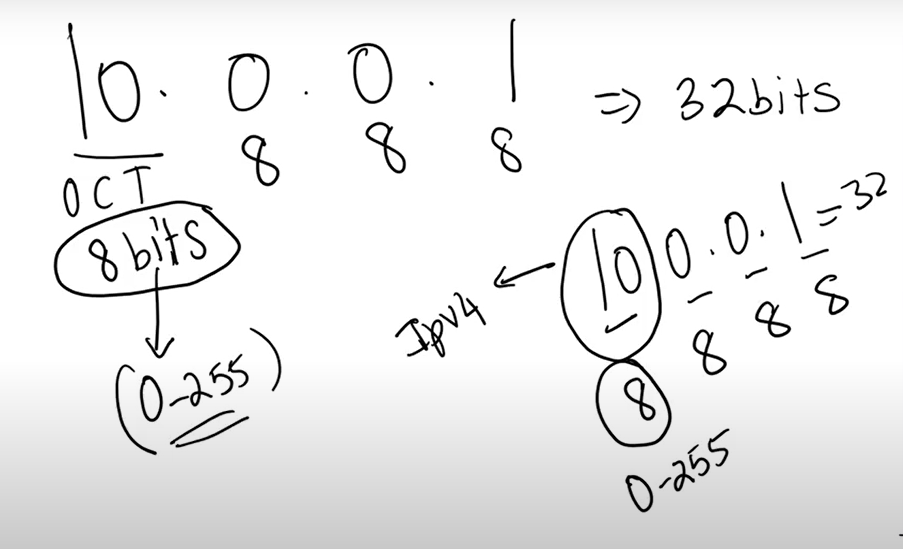 10. 0. 0. 1 => 32bits
OCT 8 8 8
8bits
(0-255)
10 0.0.1=32
Ipv4
8 8 8
8
0-255